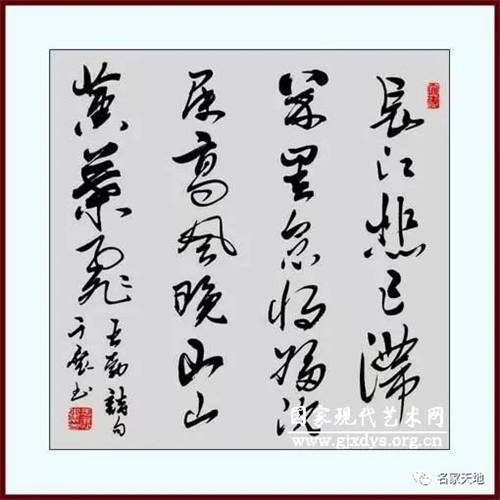 長江悲已滞
萬里念将歸况
属高風晚山山
黄葉飛
王勃詩句
国家现代艺术网
www.gjxdys.org.cn
名家天地